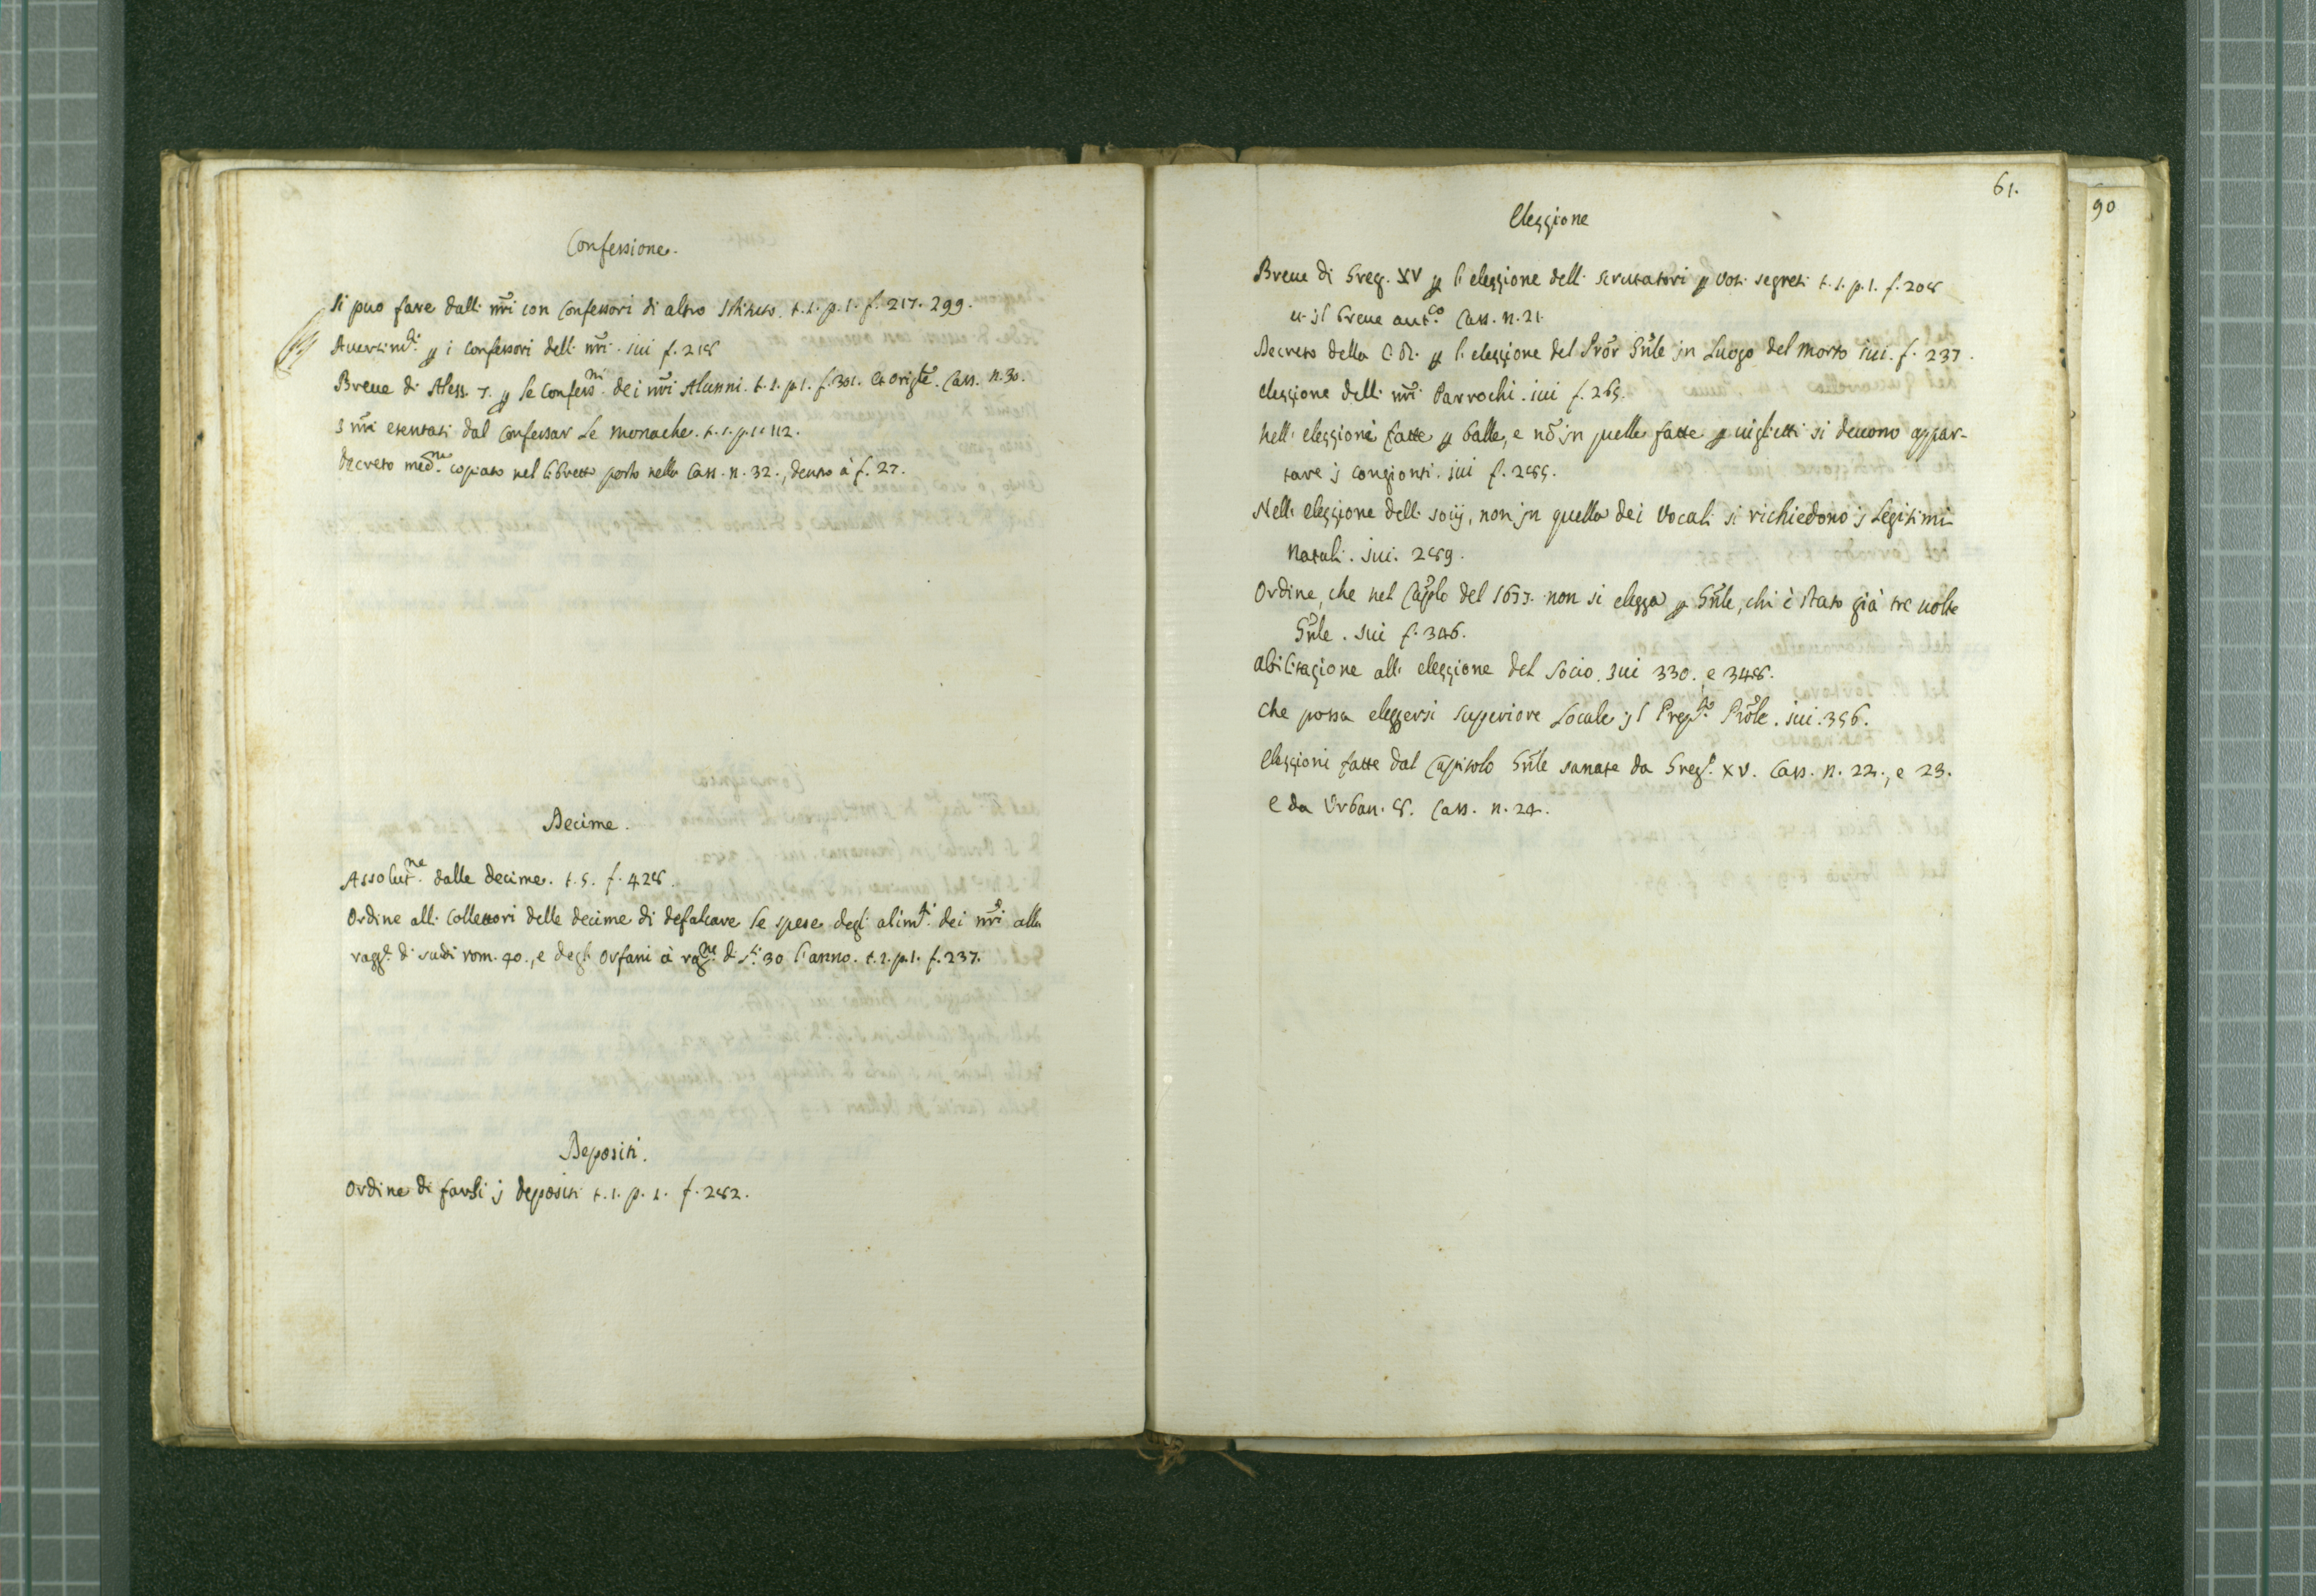 Confessione.
Si puo fare dalli nri con Confessori di altro Istituto. t.1. p.1. f. 217. 299.
Auertimti p i Confessori delli nri. iui f. 218
Breue di Aless. 7. p le Confessni dei nri Alunni. t.1. p.1. f. 301. et origle. Cass. n. 30.
I nri esentati dal Confessar le monache. t.1. p.1. 112.
Decreto medne copiato nel libretto posto nella Cass. n. 32., dentro à f. 27.
Decime.
Assolutne dalle decime. t.5. f. 428.
Ordine alli Collettori delle decime di defalcare le spese degli alimti dei nri alla
di scudi rom. 40., e degli Orfani à ragne di 30 l'anno. t.1. p.1. f. 237.
Depositi.
Ordine di farsi j depositi t.1. p.1. f. 282.
61.
90
Elezzione
Breue di Greg. XV p l'elezzione delli scrutatori p voti segreti t.1. p.1. f. 208
u. jl breue autco Cass. n. 21.
Decreto della C. R. p l'elezzione del Pror Gnle jn luogo del morto iui. f. 237.
elezzione delli nri Parrochi. iui f. 265.
nelli elezzioni fatte p balle, e nō jn quelle fatte p uiglietti si deuono appar-
tare j congionti. iui f. 285.
Nelli elezzione delli socij, non jn quella dei Vocali si richiedono j legitimi
natali. iui. 289.
Ordine, che nel Caplo del 1653. non si elegga p Gnle, chi è stato già tre uolte
Gnle. iui f. 346.
abilitazione alli elezzione del Socio. iui 330. e 348.
Che possa eleggersi superiore Locale jl Prepto Prole. iui. 356.
Elezzioni fatte dal Capitolo Gnle sanate da Grego XV. Cass. n. 22., e 23.
e da Urban. 8. Cass. n. 24.